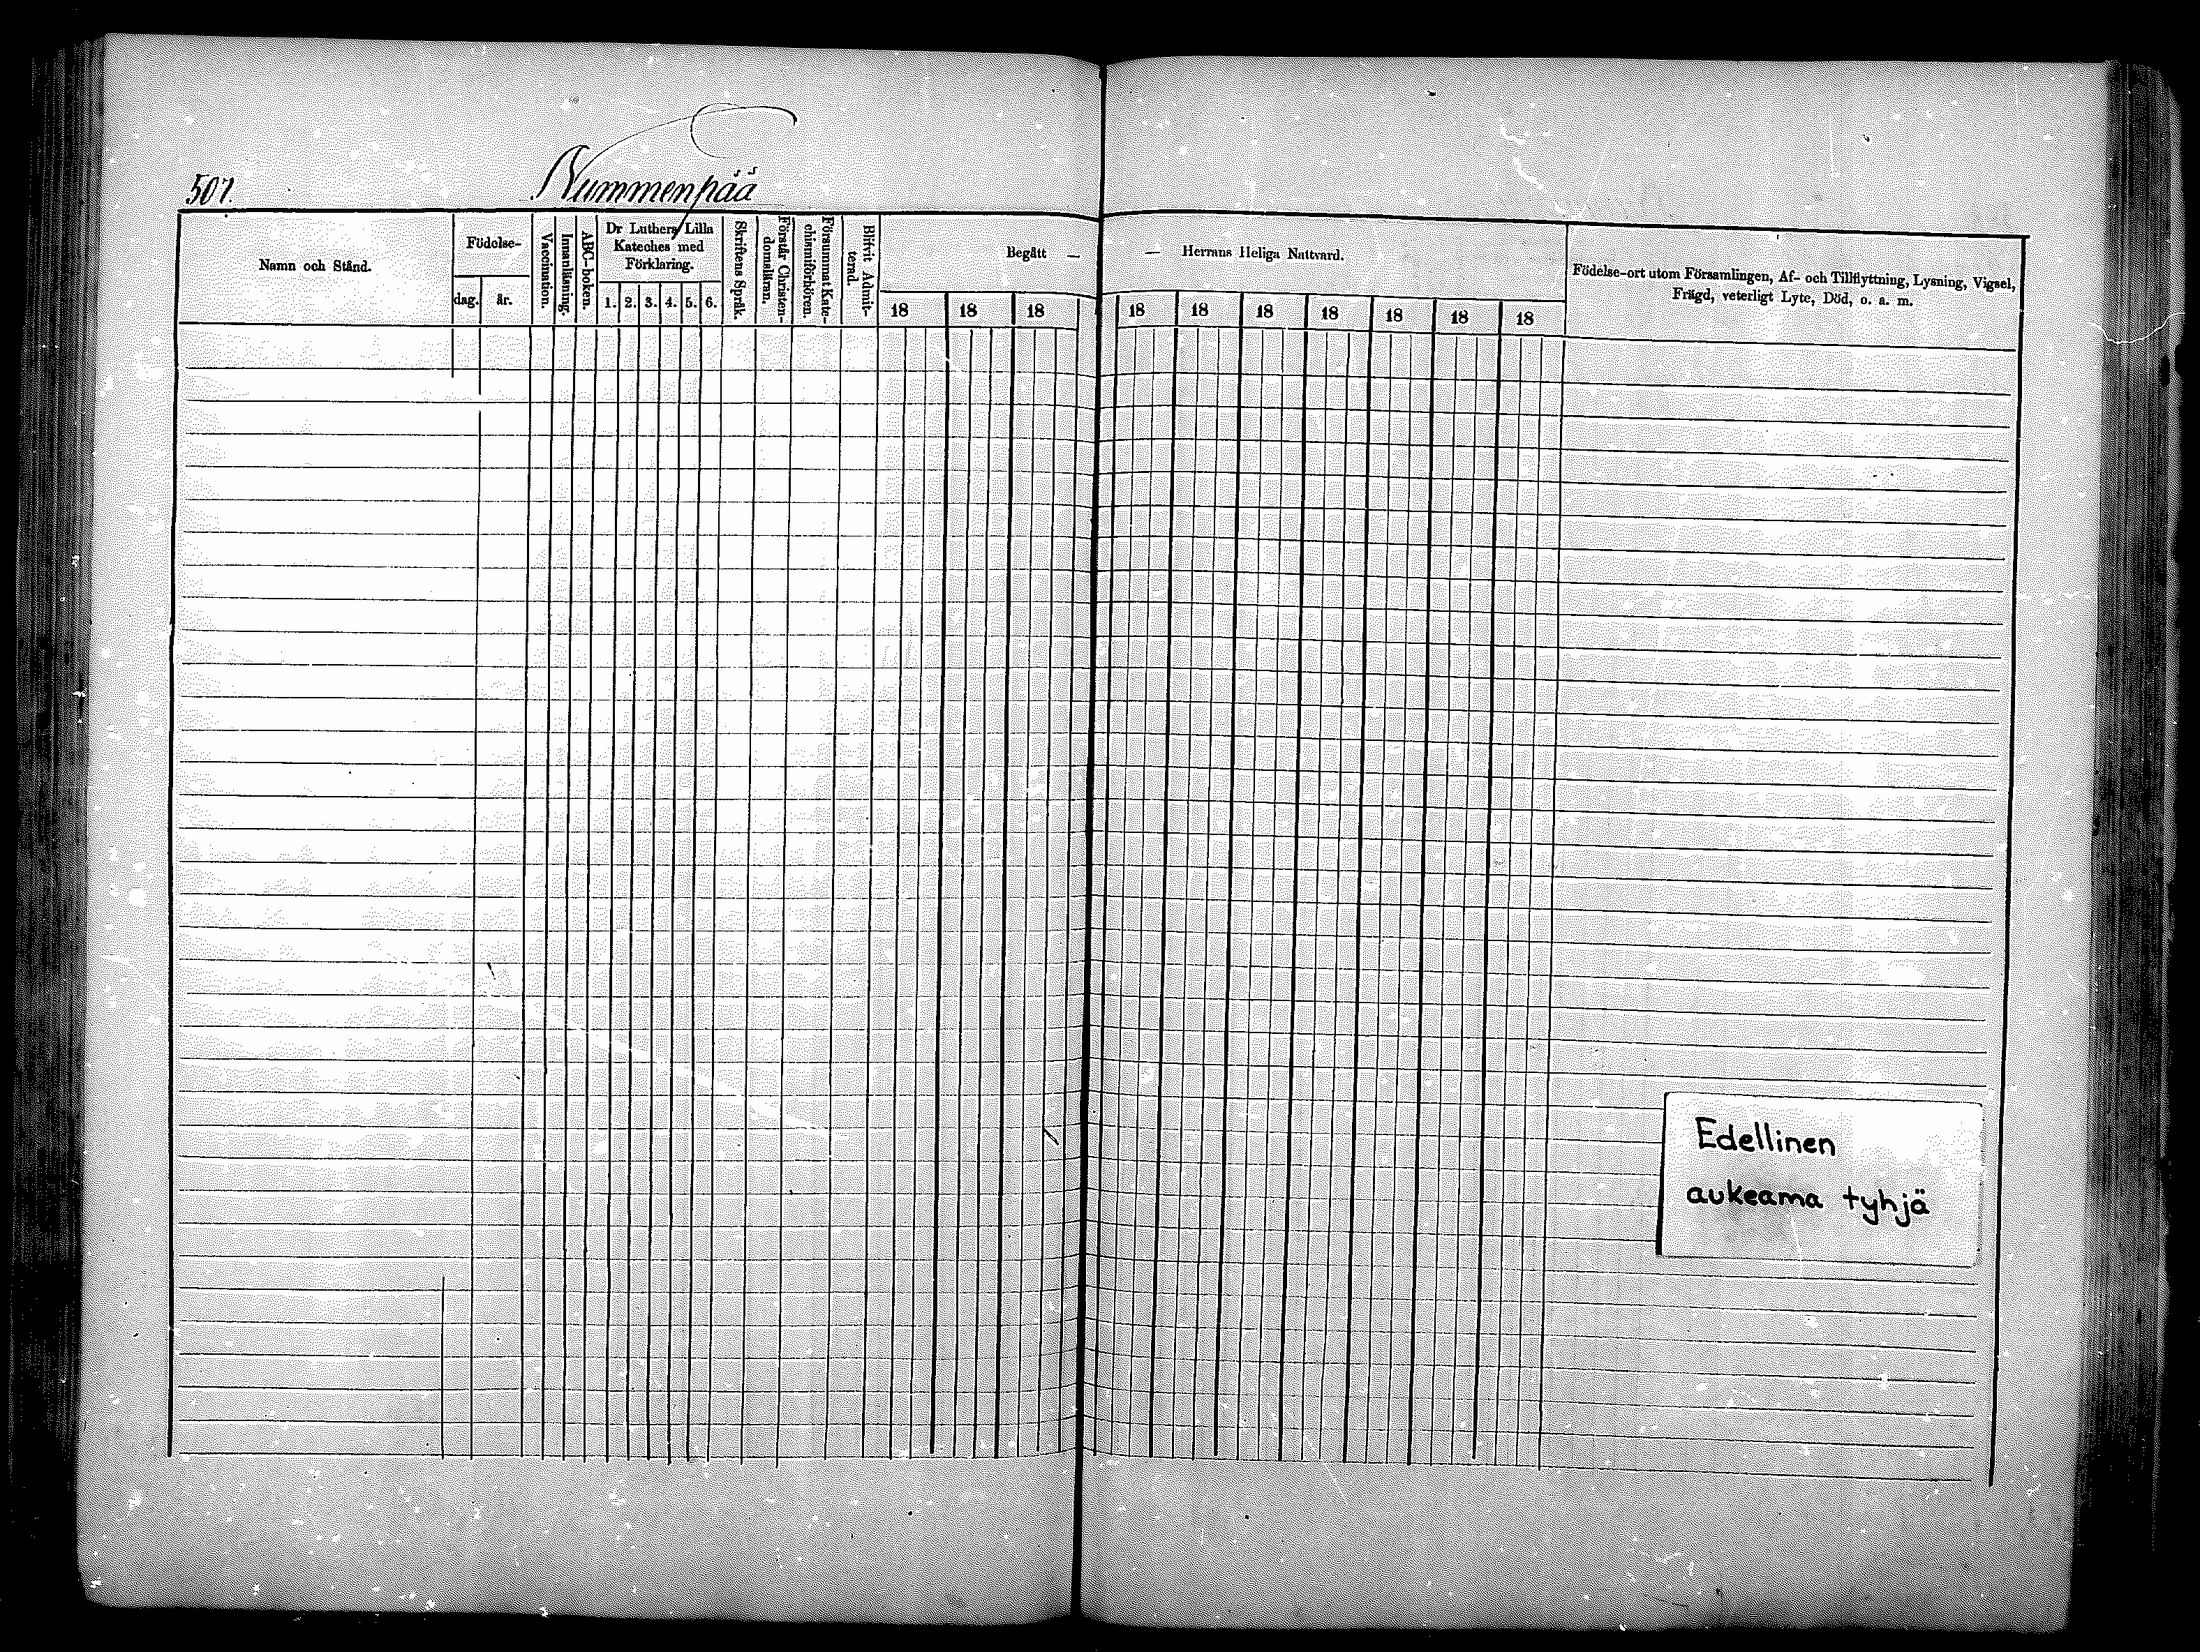 507.
Nummenpää
Namn och Stånd.
Födelse-
dag.
år.
Vaccination.
Innanläsning.
ABC-boken.
Dr Luthers Lilla
Kateches med
Förklaring.
1. 2. 3. 4. 5. 6.
Skriftens Språk.
Förstår Christen-
domsläran.
Försummat Kate-
chismiförhören.
Blifvit Admit-
terad.
Begått —
18 18 18
— Herrans Heliga Nattvard.
18 18 18 18 18 18 18
Födelse-ort utom Församlingen, Af- och Tillflyttning, Lysning, Vigsel,
Frägd, veterligt Lyte, Död, o. a. m.
Edellinen
aukeama tyhjä